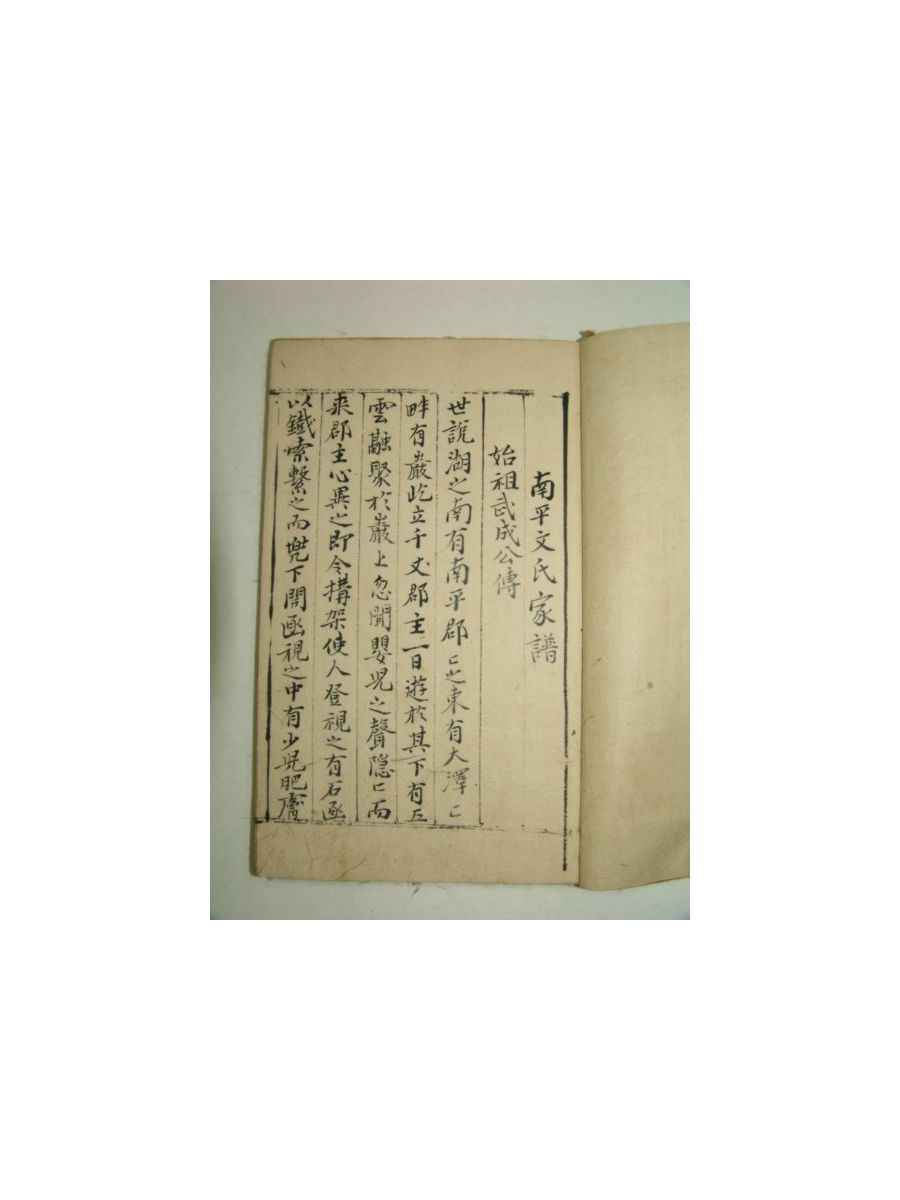 南平文氏家譜
始祖武成公傳
世說湖之南有南平郡〻之東有大澤〻
畔有巖屹立千丈郡主一日遊於其下有五
雲融聚於巖上忽聞嬰児之聲隱〻而
來郡主心異之即令搆架使人登視之有石函
以鐵索繫之而兠下開函視之中有少児肥膚